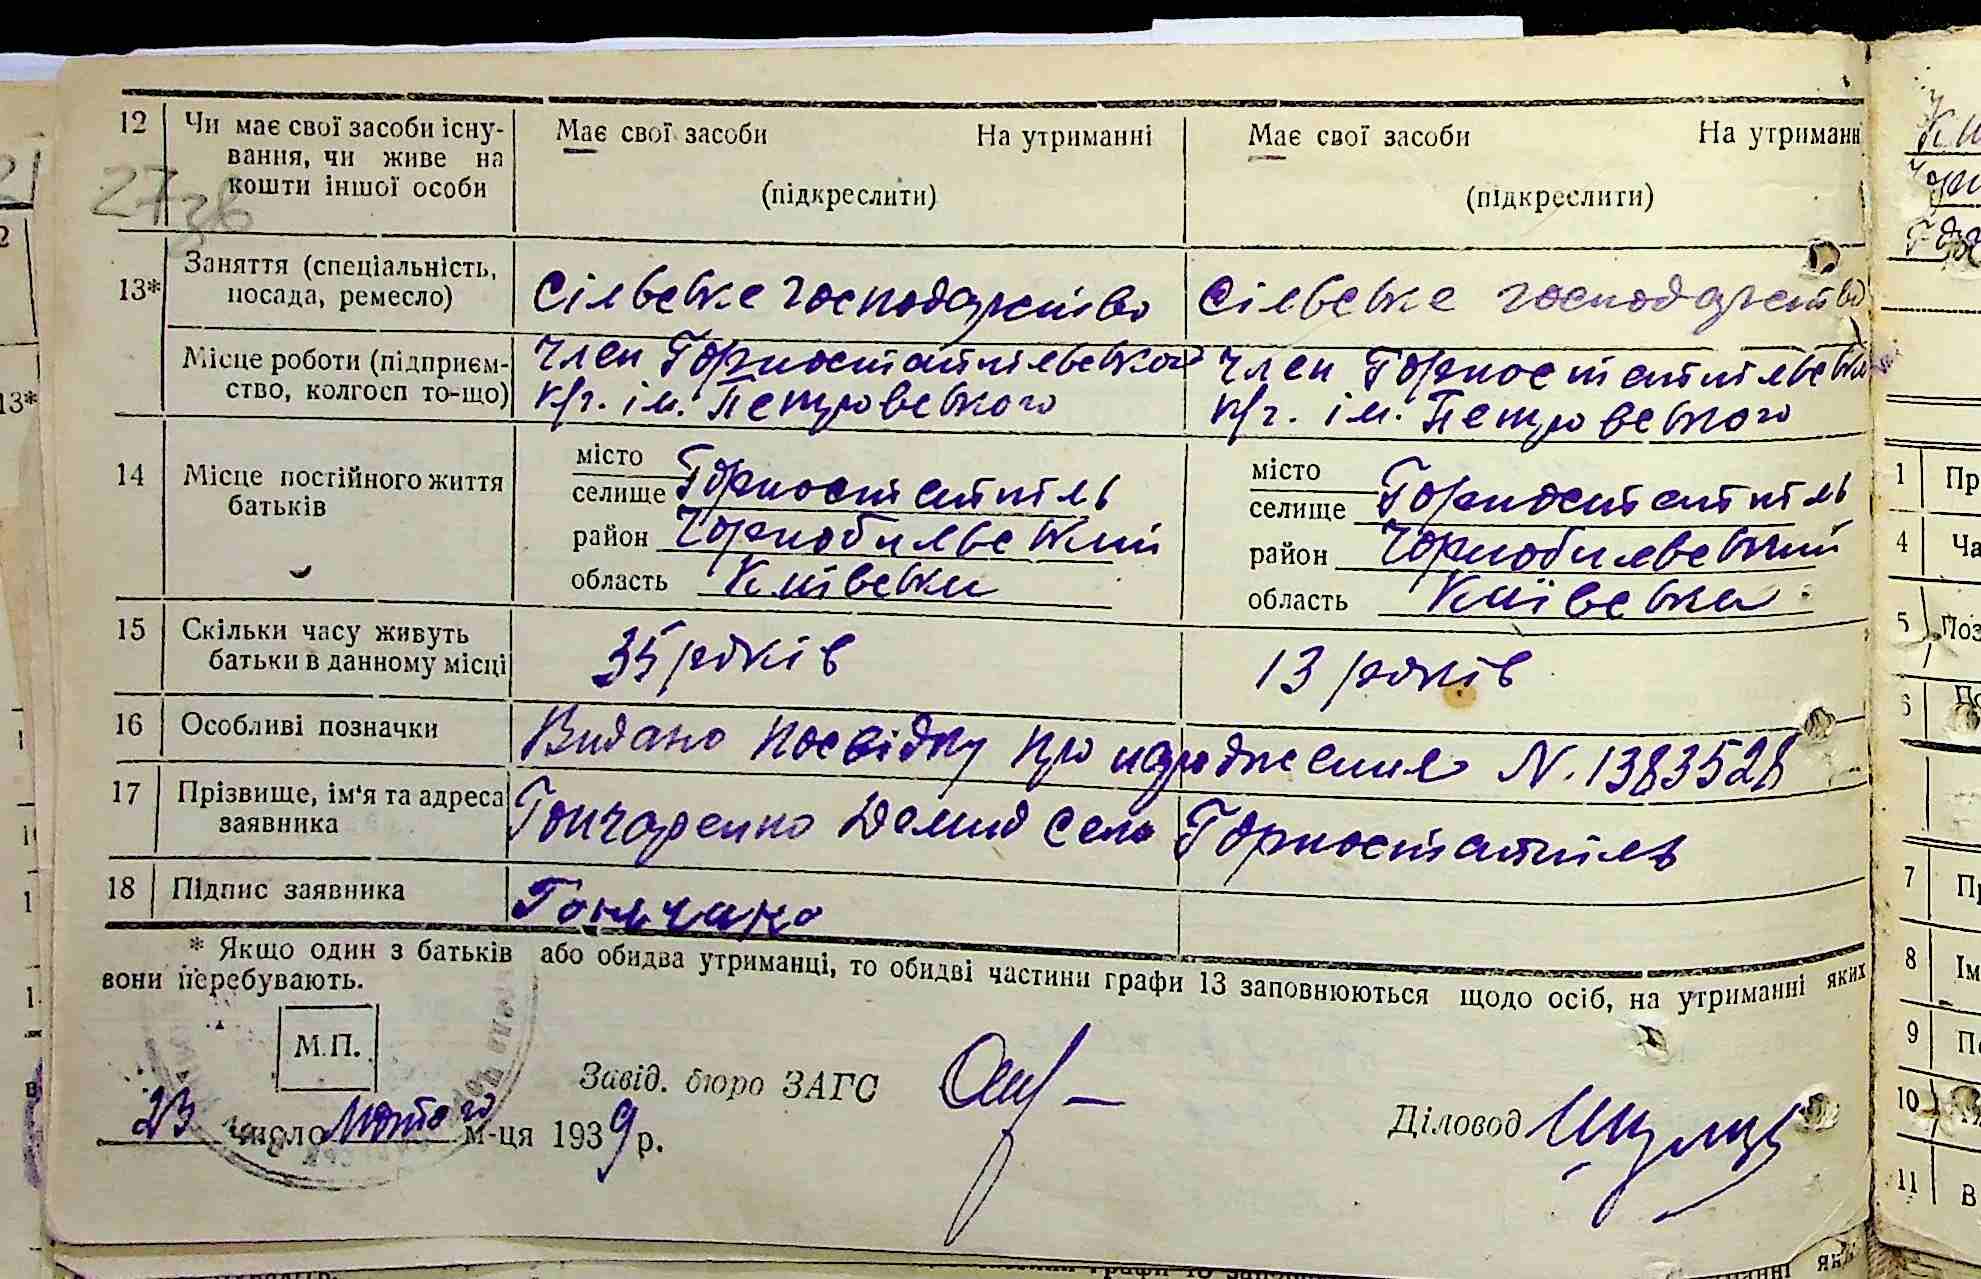 12 Чи має свої засоби існу-
вання, чи живе на
кошти іншої особи
Має свої засоби На утриманні
(підкреслити)
Має свої засоби На утриманн
(підкреслити)
13* Заняття (спеціальність,
посада, ремесло)
Сільське господарство
Сільське господарство
Місце роботи (підприєм-
ство, колгосп то-що)
Член Горностайпільської
к/г. ім. Петровського
Член Горностайпільськ
к/г. ім. Петровського
14 Місце постійного життя
батьків
місто
селище Горностайпіль
район Чорнобильський
область Київська
місто
селище Горностайпіль
район Чорнобильський
область Київська
15 Скільки часу живуть
батьки в данному місці
35 років
13 років
16 Особливі позначки
Видано посвідку про народження N. 1383528
17 Прізвище, ім'я та адреса
заявника
Гончаренко Демид село Горностайпіль
18 Підпис заявника
* Якщо один з батьків або обидва утриманці, то обидві частини графи 13 заповнюються щодо осіб, на утриманні яких
вони перебувають.
М.П.
Завід. бюро ЗАГС
Діловод
23 число лютого м-ця 1939 р.
13*
1 Пр
4 Ча
5 Поз
6
7 Пр
8 Ім
9 По
10
11 В